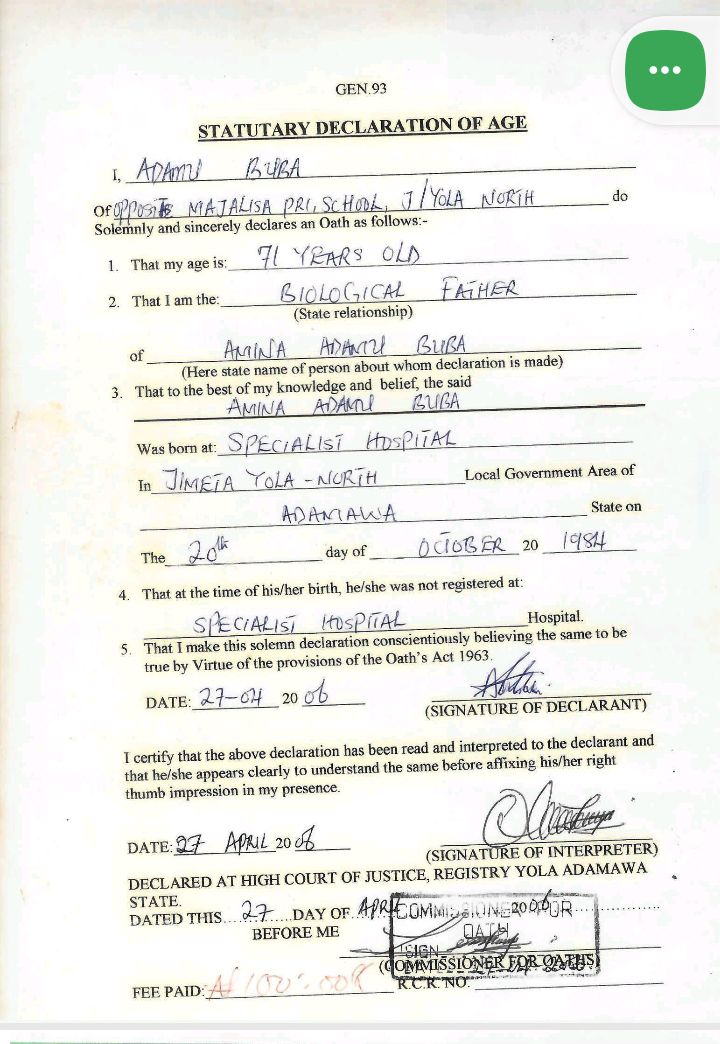 GEN.93
STATUTARY DECLARATION OF AGE
I, ADAMU BUBA
Of OPPOSITE MAJALISA PRI, SCHOOL, J/YOLA NORTH do
Solemnly and sincerely declares an Oath as follows:-
1. That my age is: 71 YEARS OLD
2. That I am the: BIOLOGICAL FATHER
(State relationship)
of AMINA ADAMU BUBA
(Here state name of person about whom declaration is made)
3. That to the best of my knowledge and belief, the said
AMINA ADAMU BUBA
Was born at: SPECIALIST HOSPITAL
In JIMETA YOLA-NORTH Local Government Area of
ADAMAWA State on
The 20th day of OCTOBER 20 1984
4. That at the time of his/her birth, he/she was not registered at:
SPECIALIST HOSPITAL Hospital.
5. That I make this solemn declaration conscientiously believing the same to be
true by Virtue of the provisions of the Oath's Act 1963.
DATE: 27-04 20 06
(SIGNATURE OF DECLARANT)
I certify that the above declaration has been read and interpreted to the declarant and
that he/she appears clearly to understand the same before affixing his/her right
thumb impression in my presence.
DATE: 27 APRIL 20 06
(SIGNATURE OF INTERPRETER)
DECLARED AT HIGH COURT OF JUSTICE, REGISTRY YOLA ADAMAWA
STATE.
DATED THIS 27 DAY OF APRIL 20 06
BEFORE ME
COMMISSIONER FOR
OATH
SIGN
(COMMISSIONER FOR OATHS)
DATE
FEE PAID: ₦100:00K R.C.R. NO.